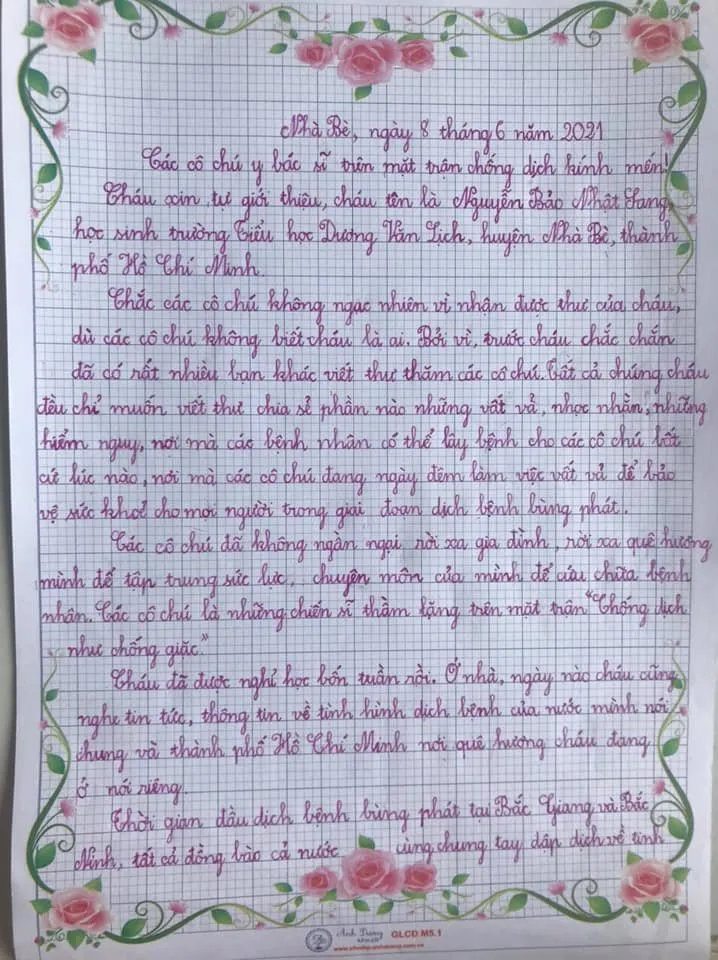 Nhà Bè, ngày 8 tháng 6 năm 2021
Các cô chú y bác sĩ trên mặt trận chống dịch kính mến!
Cháu xin tự giới thiệu, cháu tên là Nguyễn Bảo Nhật Sang,
học sinh trường Tiểu học Dương Văn Lịch, huyện Nhà Bè, thành
phố Hồ Chí Minh.
Chắc các cô chú không ngạc nhiên vì nhận được thư của cháu,
dù các cô chú không biết cháu là ai. Bởi vì, trước cháu chắc chắn
đã có rất nhiều bạn khác viết thư thăm các cô chú. Tất cả chúng cháu
đều chỉ muốn viết thư chia sẻ phần nào những vất vả, nhọc nhằn, những
hiểm nguy, nơi mà các bệnh nhân có thể lây bệnh cho các cô chú bất
cứ lúc nào, nơi mà các cô chú đang ngày đêm làm việc vất vả để bảo
vệ sức khoẻ cho mọi người trong giai đoạn dịch bệnh bùng phát.
Các cô chú đã không ngần ngại rời xa gia đình, rời xa quê hương
mình để tập trung sức lực, chuyên môn của mình để cứu chữa bệnh
nhân. Các cô chú là những chiến sĩ thầm lặng trên mặt trận "Chống dịch
như chống giặc."
Cháu đã được nghỉ học bốn tuần rồi. Ở nhà, ngày nào cháu cũng
nghe tin tức, thông tin về tình hình dịch bệnh của nước mình nói
chung và thành phố Hồ Chí Minh nơi quê hương cháu đang
ở nói riêng.
Thời gian đầu dịch bệnh bùng phát tại Bắc Giang và Bắc
Ninh, tất cả đồng bào cả nước cùng chung tay dập dịch về tinh
Anh Dương GLCD M5.1